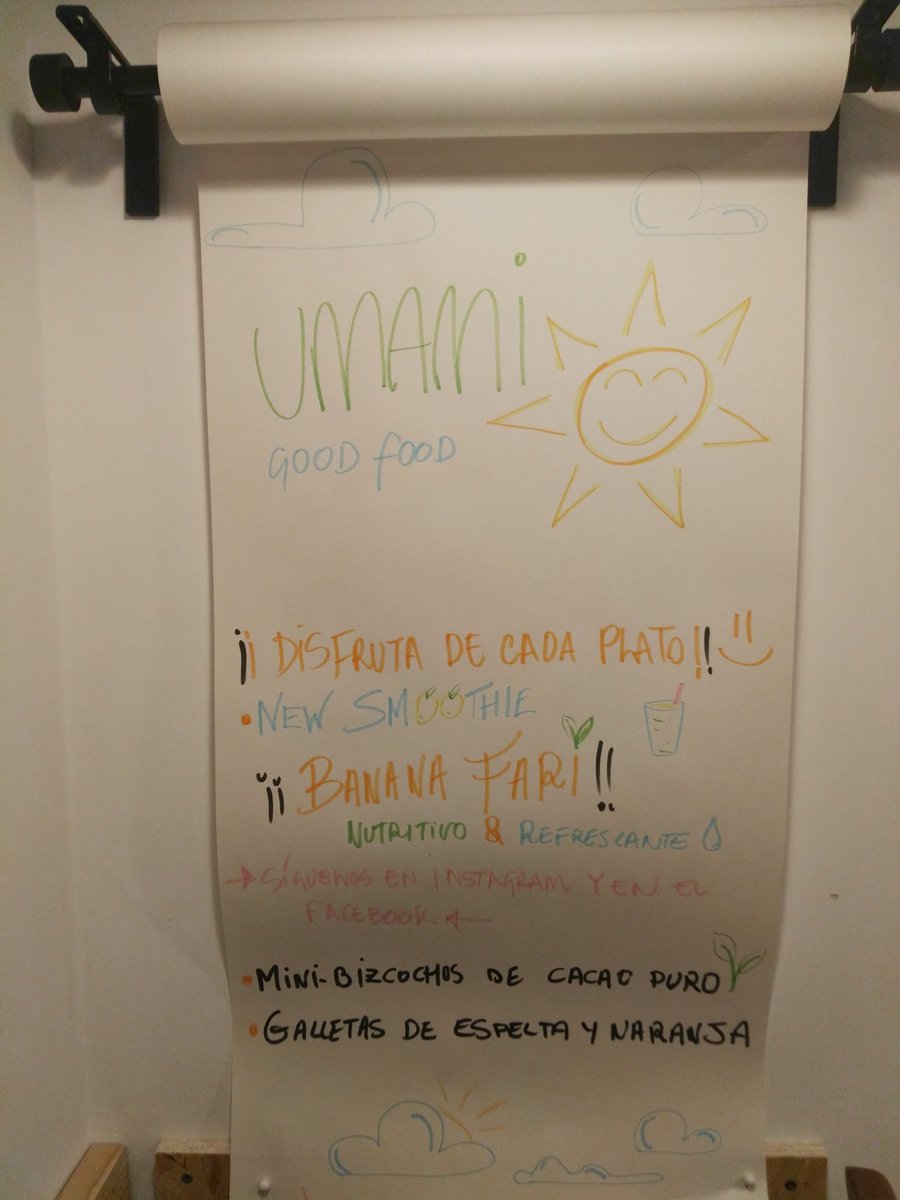 UMAMi
GOOD FOOD
¡¡ DiSFRUTA DE CADA PLATO!!
• NEW SMOOTHIE
¡¡ BANANA FARi!!
NUTRITIVO & REFRESCANTE
→ SÍGUENOS EN INSTAGRAM Y EN EL
FACEBOOK ←
• MiNi-BiZCOCHOS DE CACAO PURO
• GALLETAS DE ESPELTA Y NARANJA